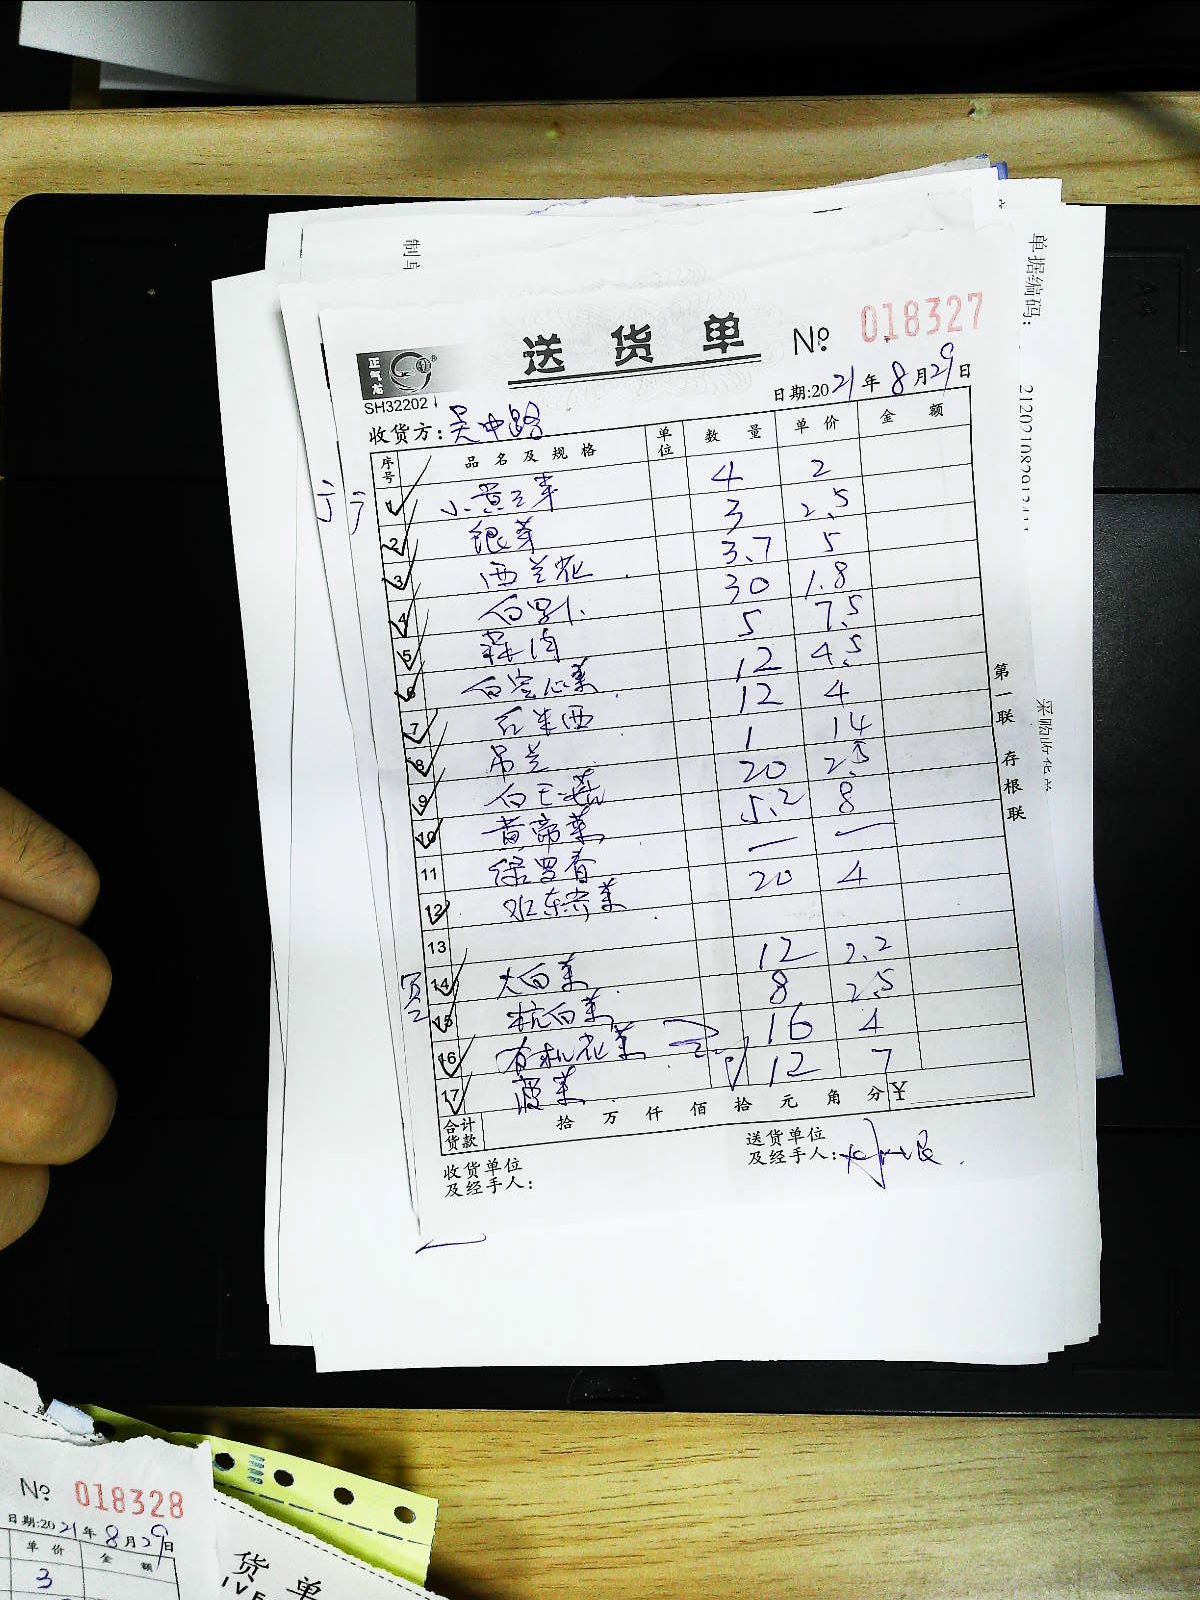 制单
单据编码：
2120210829134
送货单 No. 018327
正气龙
SH32202
日期:2021年8月29日
收货方:吴中路
序号 品名及规格 单位 数量 单价 金额
1 小黄豆芽 4 2
2 银芽 3 2.5
3 西兰花 3.7 5
4 30 1.8
5 5 7.5
6 白空心菜 12 4.5
7 红朱西 12 4
8 吊兰 1 14
9 白玉菇 20 2.5
10 黄帝菜 5.2 8
11 绿罗春 — —
12 20 4
13
14 大白菜 12 2.2
15 杭白菜 8 2.5
16 有机花菜 16 4
17 菠菜 12 7
合计货款 拾万仟佰拾元角分 ¥
收货单位及经手人:
送货单位及经手人:
第一联 存根联
No. 018328
日期:2021年8月29日
单价 金额
3
货单
IVE